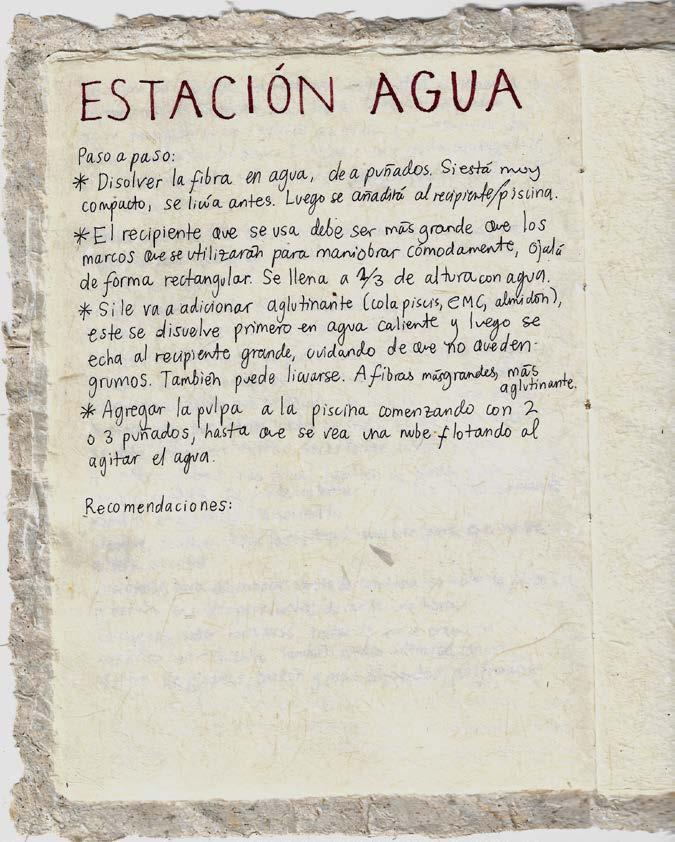 ESTACIÓN AGUA
Paso a paso:
* Disolver la fibra en agua, de a puñados. Si está muy
compacto, se licúa antes. Luego se añadirá al recipiente/piscina.
* El recipiente que se usa debe ser más grande que los
marcos que se utilizarán para maniobrar cómodamente, ojalá
de forma rectangular. Se llena a 2/3 de altura con agua.
* Si le va a adicionar aglutinante (cola piscis, CMC, almidón),
este se disuelve primero en agua caliente y luego se
echa al recipiente grande, cuidando de que no queden-
grumos. También puede licuarse. A fibras más grandes, más
aglutinante.
* Agregar la pulpa a la piscina comenzando con 2
o 3 puñados, hasta que se vea una nube flotando al
agitar el agua.
Recomendaciones: